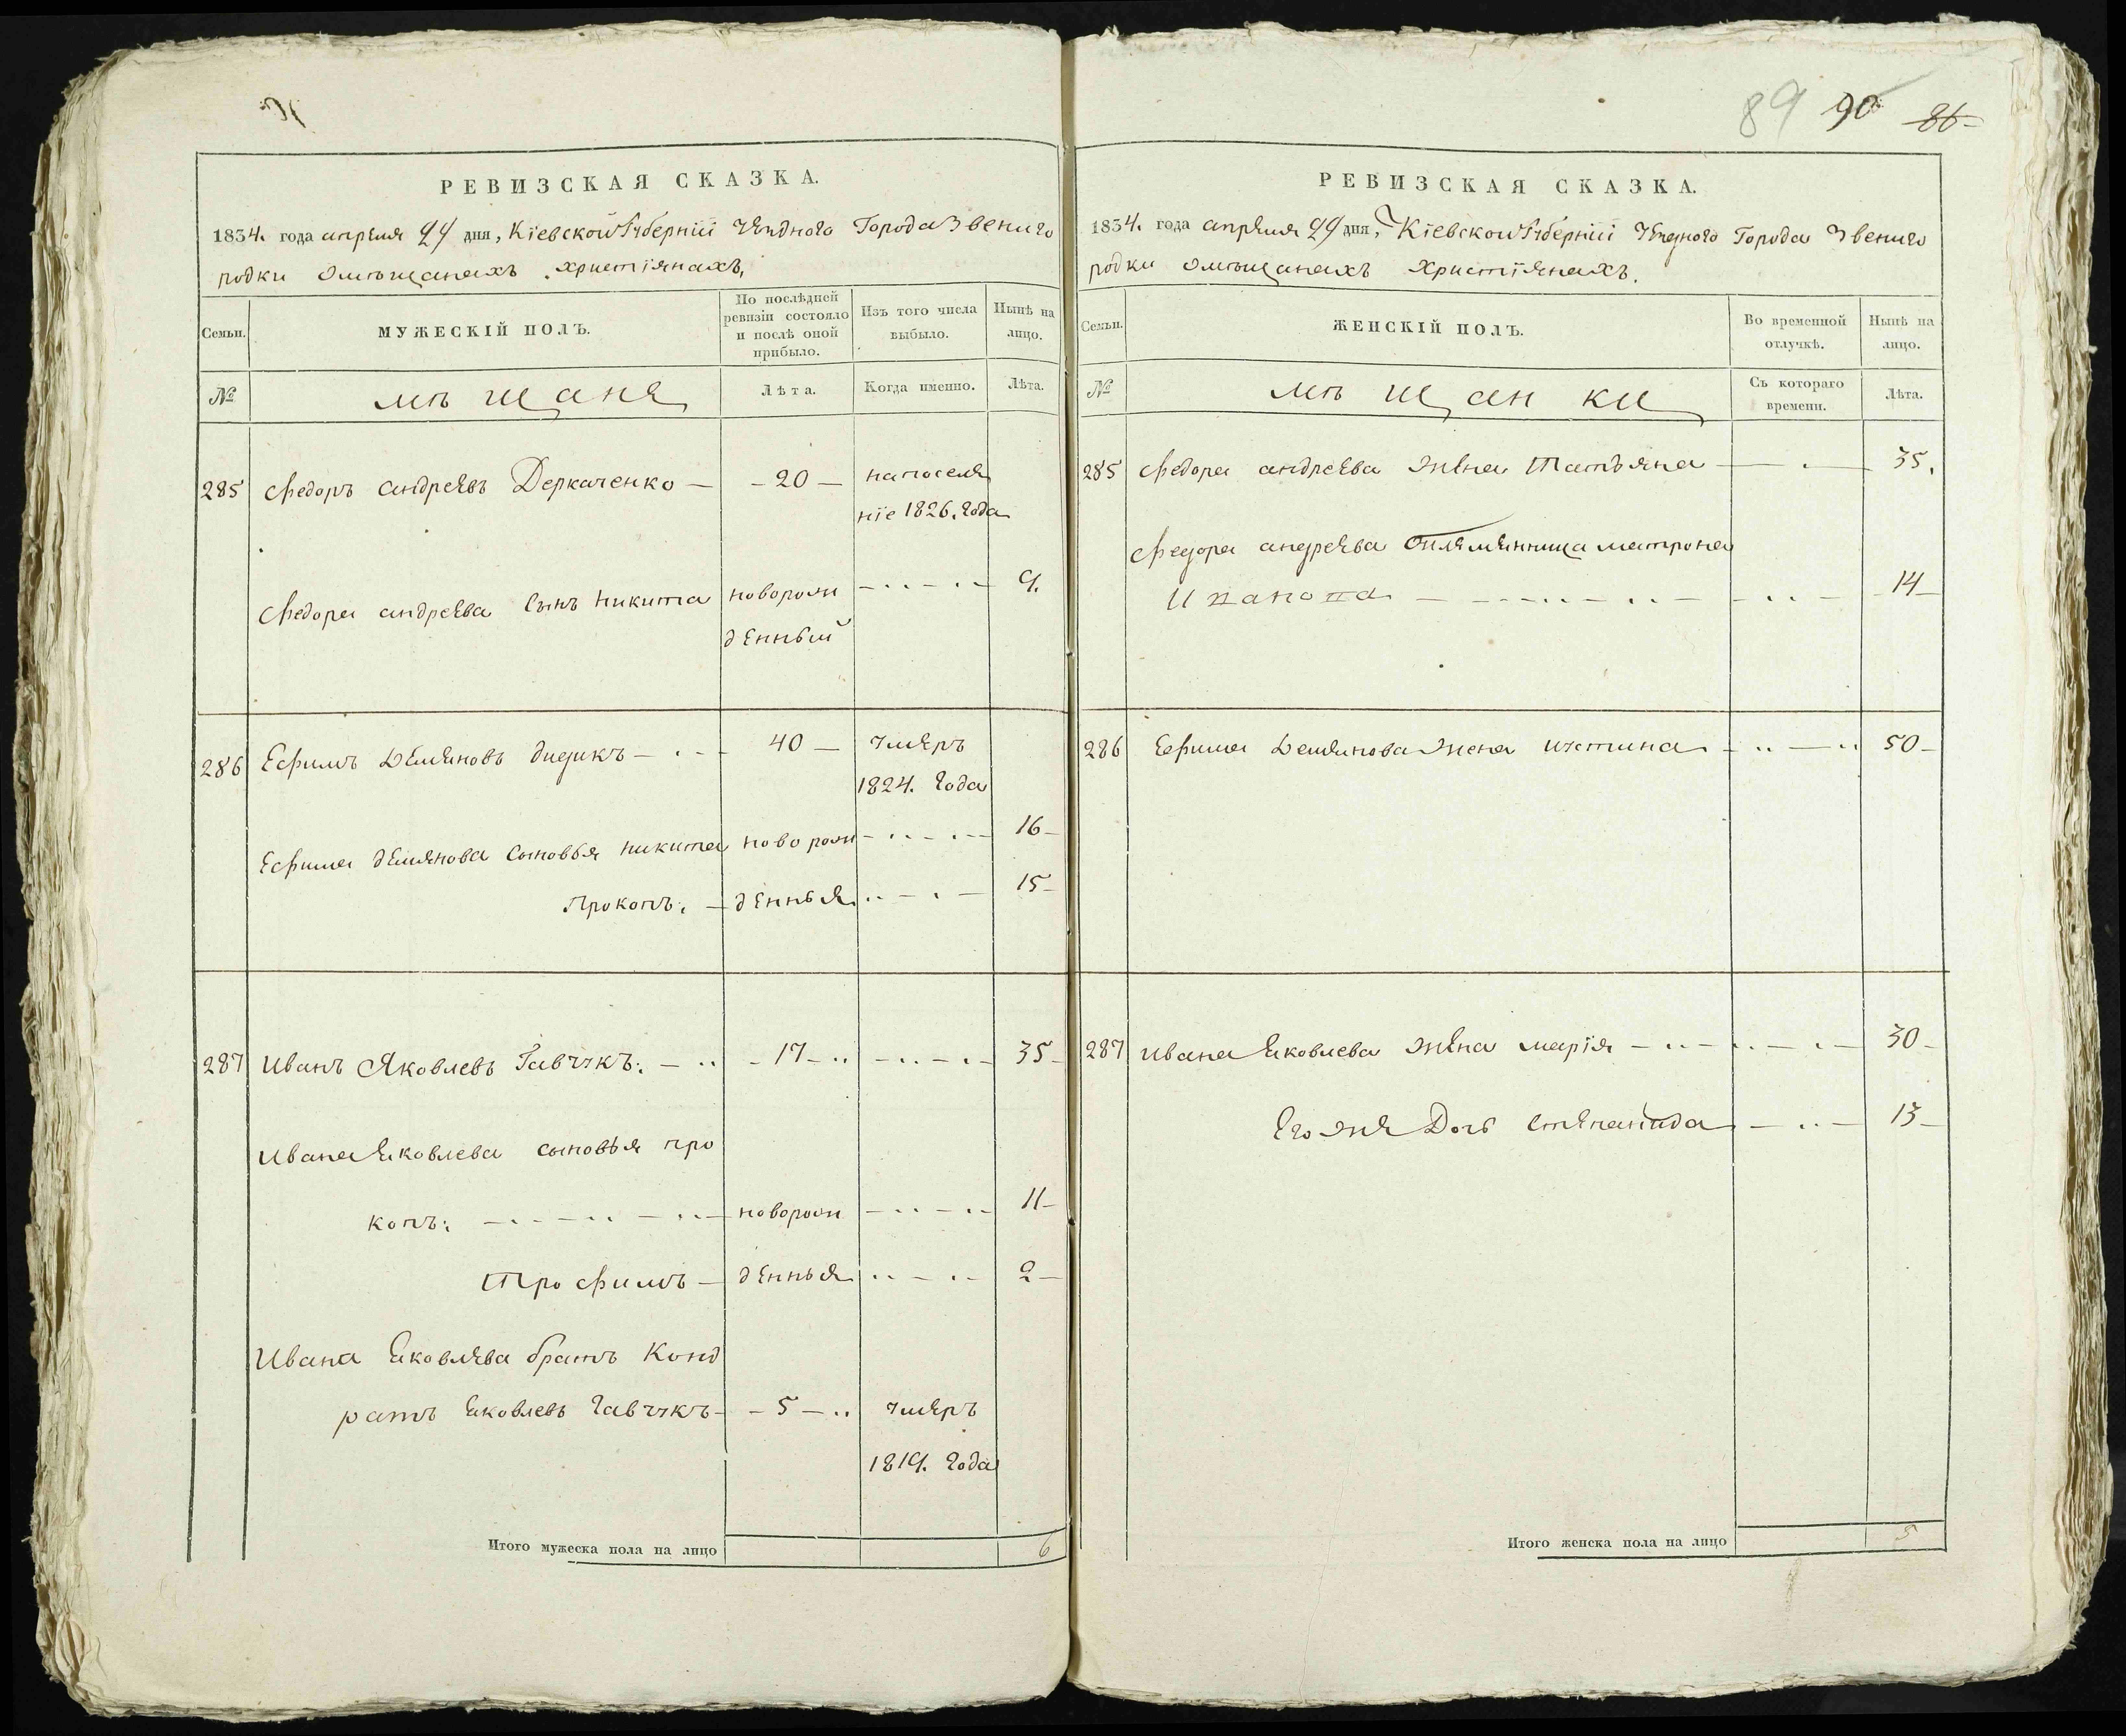 РЕВИЗСКАЯ СКАЗКА.
1834. года апреля 24 дня, Кіевской Губерніи Уѣзднаго Города Звениго
родки Омѣщанахъ христіянахъ,
Семьи.
МУЖЕСКІЙ ПОЛЪ.
По послѣдней
ревизіи состояло
и послѣ оной
прибыло.
Изъ того числа
выбыло.
Нынѣ на
лицо.
№
мѣщане
Лѣта.
Когда именно.
Лѣта.
285 Федоръ андреевъ Деркаченко — – 20 — на поселе
ніе 1826. года
Федора андреева сынъ Никита новорож 9.
денный
286 Ефимъ Демяновъ дидикъ — 40 — умеръ
1824. года
Ефима демянова сыновья никита новорож 16
Прокопъ. денныя 15
287 Иванъ Яковлевъ Гавчукъ. — 17 — 35
Ивана Яковлева сыновья про
копъ: новорож 11
Трофимъ — денныя 2
Ивана Яковлева братъ Конд
ратъ Яковлевъ Гавчукъ — 5 — умеръ
1819. года
Итого мужеска пола на лицо 6
89 90 86
РЕВИЗСКАЯ СКАЗКА.
1834. года апреля 24 дня, Кіевской Губерніи Уѣзднаго Города Звениго
родки Омѣщанахъ Христіянахъ.
Семьи.
ЖЕНСКІЙ ПОЛЪ.
Во временной
отлучкѣ.
Нынѣ на
лицо.
№
мѣщанки
Съ котораго
времени.
Лѣта.
285 Федора андреева жена Татьяна — 35.
Федора андреева племянница матрона
Иванова 14
286 Ефима Демянова жена устина 50
287 Ивана Яковлева жена марія — 30
Его же Дочь степанида 13
Итого женска пола на лицо 5